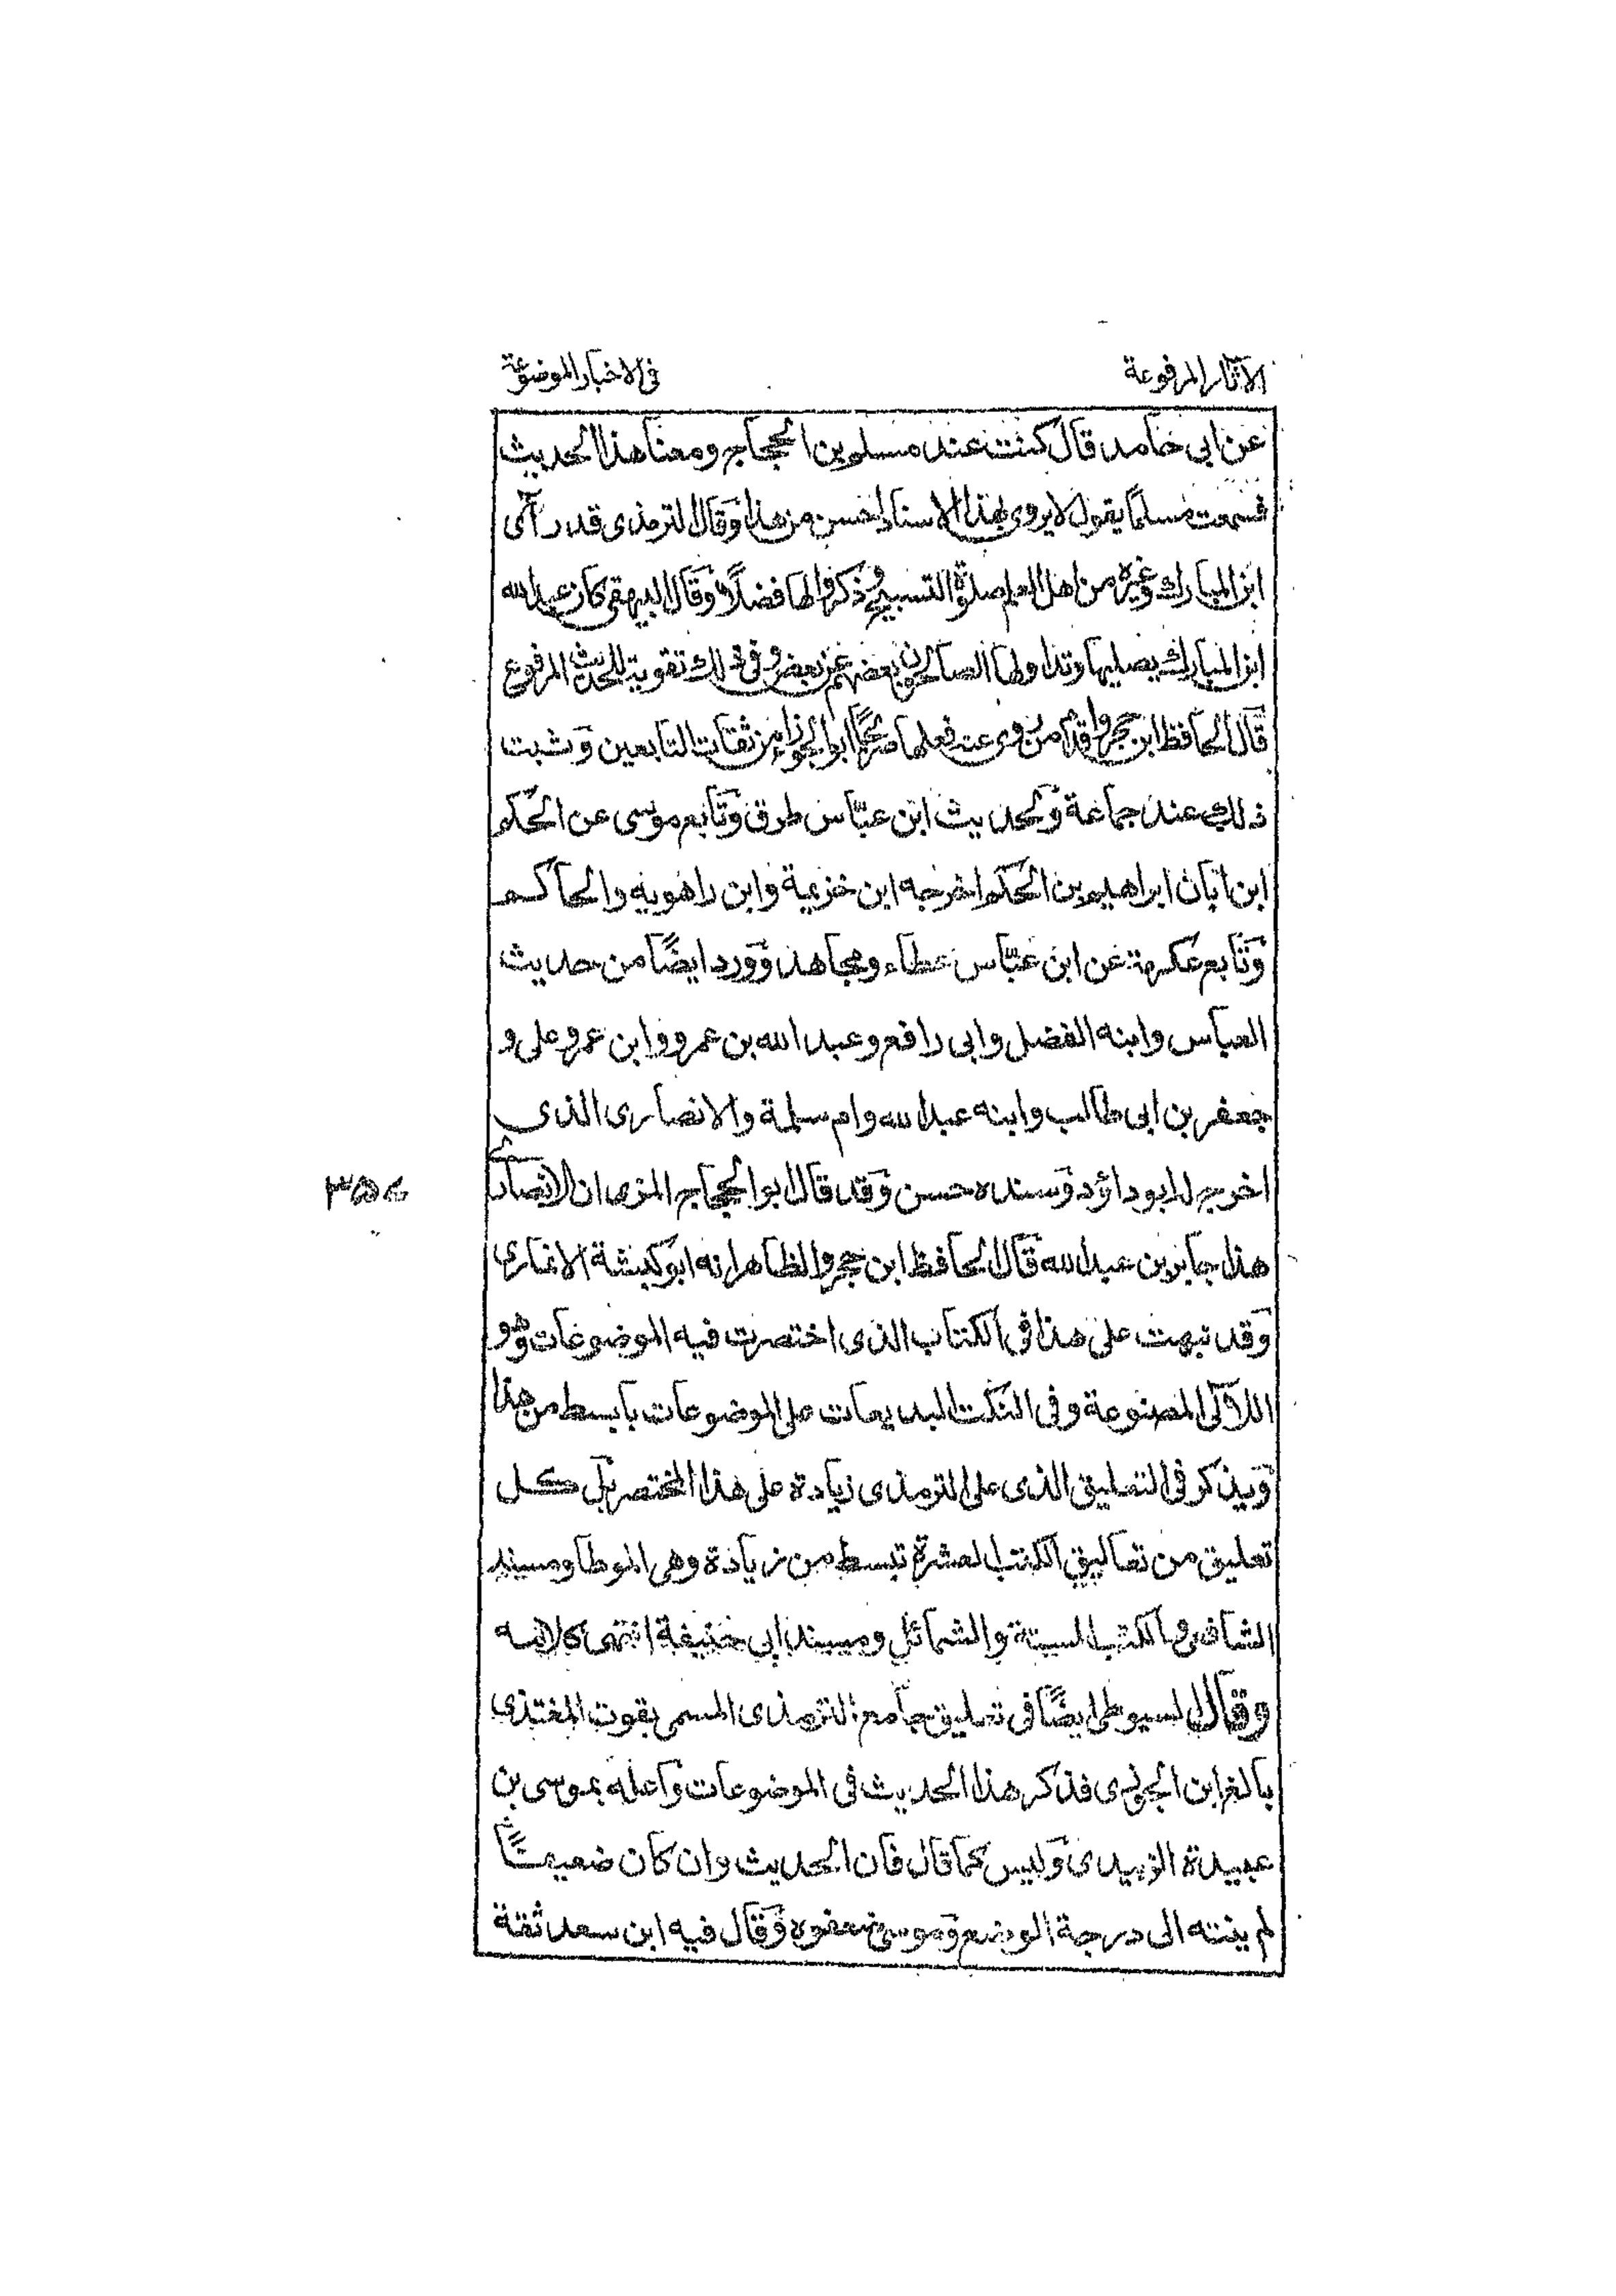 الآثار المرفوعة
فی الاخبار الموضوعة
عن ابی حامد قال كنت عند مسلم بن الحجاج ومعنا هذا الحدیث
فسمعت مسلمًا یقول لا یروی بهذا الاسناد احسن من هذا وقال الترمذی قد رأی
ابن المبارك وغیره من اهل العلم صلوة التسبیح وذكروا لها فضلًا وقال البیهقی كان عبد الله
ابن المبارك یصلیها وتداولها الصالحون بعضهم عن بعض وفی ذلك تقویة للحدیث المرفوع
قال الحافظ ابن حجر واقدم من روی عنه فعلها صریحًا ابو الجوزاء من ثقات التابعین وثبت
ذلك عند جماعة ولحدیث ابن عبّاس طرق وتابع موسی عن الحكم
ابن ابان ابراهیم بن الحكم اخرجه ابن خزیمة وابن راهویه والحاكم
وتابع عكرمة عن ابن عبّاس عطاء ومجاهد وورد ایضًا من حدیث
العباس وابنه الفضل وابی رافع وعبد الله بن عمرو وابن عمر وعلی و
جعفر بن ابی طالب وابنه عبد الله وام سلمة والانصاری الذی
اخرج له ابو داؤد وسنده حسن وقد قال ابو الحجاج المزی ان الانصاری
۳۵۶
هذا جابر بن عبد الله قال الحافظ ابن حجر والظاهر انه ابو كبشة الانماری
وقد نبهت علی هذا فی الكتاب الذی اختصرت فیه الموضوعات وهو
اللآلی المصنوعة وفی النكت البدیعات علی الموضوعات بابسط من هذا
ویذكر فی التعلیق الذی علی الترمذی زیادة علی هذا المختصر بل كل
تعلیق من تعالیق الكتب العشرة تبسط من زیادة وهی الموطا ومسند
الشافعی والكتب الستة والشمائل ومسند ابی حنیفة انتهی كلامه
وقال السیوطی ایضًا فی تعلیق جامع الترمذی المسمی بقوت المغتذی
بالغ ابن الجوزی فذكر هذا الحدیث فی الموضوعات واعله بموسی بن
عبیدة الزبیدی ولیس كما قال فان الحدیث وان كان ضعیفًا
لم ینته الی درجة الوضع وموسی ضعفوه وقال فیه ابن سعد ثقة